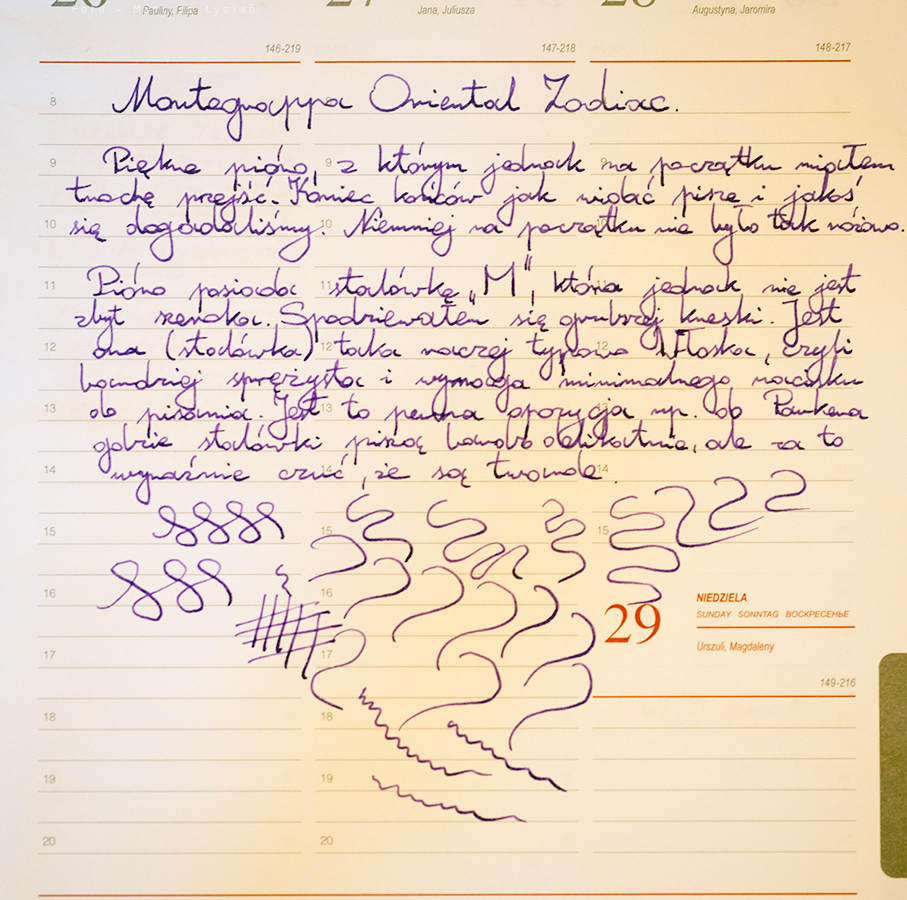 Pauliny, Filipa
Jana, Juliusza
Augustyna, Jaromira
146-219
147-218
148-217
8
Montegrappa Oriental Zodiac.
9 9 9
Piękne pióro, z którym jednak na początku miałem
trochę przejść. Koniec końców jak widać piszę i jakoś
10 10 10
się dogadaliśmy. Niemniej na początku nie było tak różowo.
11 11
Pióro posiada stalówkę „M", która jednak nie jest
zbyt szeroka. Spodziewałem się grubszej kreski. Jest
12 12 12
ona (stalówka) taka raczej typowo Włoska, czyli
bardziej sprężysta i wymaga minimalnego nacisku
13 13
do pisania. Jest to pewna opozycja np. do Parkera
gdzie stalówki piszą bardo delikatnie, ale za to
14 14 14
wyraźnie czuć, że są twarde.
15 15 15
16 16
29
NIEDZIELA
SUNDAY SONNTAG ВОСКРЕСЕНЬЕ
Urszuli, Magdaleny
17 17
149-216
18 18
19 19
20 20